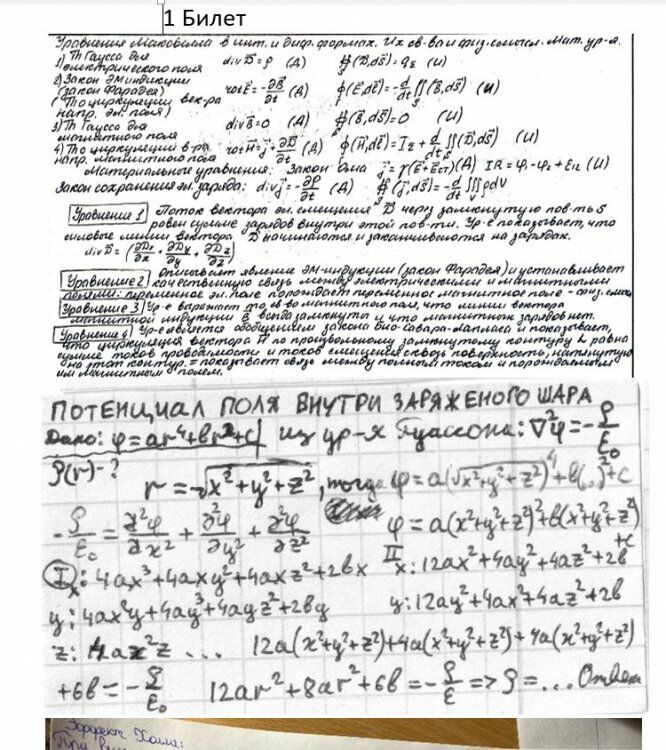 1 Билет
Уравнения Максвелла в инт. и диф. формах. Их св-ва и физ. смысл. Мат. ур-я.
1) Th Гаусса для электрического поля div D⃗ = ρ (Д) ∯(D⃗,dS⃗) = q_Σ (И)
2) Закон ЭМ индукции (закон Фарадея) rot E⃗ = -∂B⃗/∂t (Д) ∮(E⃗,dℓ⃗) = -d/dt ∬(B⃗,dS⃗) (И)
(Th о циркуляции век-ра напр. эл. поля)
3) Th Гаусса для магнитного поля div B⃗ = 0 (Д) ∯(B⃗,dS⃗) = 0 (И)
4) Th о циркуляции в-ра напр. магнитного поля rot H⃗ = j⃗ + ∂D⃗/∂t (Д) ∮(H⃗,dℓ⃗) = I_Σ + d/dt ∬(D⃗,dS⃗) (И)
Материальные уравнения: Закон Ома j⃗ = γ(E⃗+E⃗ст) (Д) IR = φ₁-φ₂+ε₁₂ (И)
Закон сохранения эл. заряда: div j⃗ = -∂ρ/∂t (Д) ∯(j⃗,dS⃗) = -d/dt ∭ρdV
Уравнение 1 Поток вектора эл. смещения D⃗ через замкнутую пов-ть S
равен сумме зарядов внутри этой пов-ти. Ур-е показывает, что
силовые линии вектора D начинаются и заканчиваются на зарядах.
div D⃗ = (∂Dx/∂x + ∂Dy/∂y + ∂Dz/∂z)
Уравнение 2 Описывает явление ЭМ-индукции (закон Фарадея) и устанавливает
качественную связь между электрическими и магнитными
полями: переменное эл. поле порождает переменное магнитное поле - физ. смысл
Уравнение 3 Ур-е выражает то св-во магнитного поля, что линии вектора
магнитной индукции B всегда замкнуты и что магнитных зарядов нет.
Уравнение 4 Ур-е является обобщением закона Био-Савара-Лапласа и показывает,
что циркуляция вектора H по произвольному замкнутому контуру L равна
сумме токов проводимости и токов смещения сквозь поверхность, натянутую
на этот контур. = показывает связь между полным током и порождаемым
им магнитным полем.
ПОТЕНЦИАЛ ПОЛЯ ВНУТРИ ЗАРЯЖЕНОГО ШАРА
Дано: φ = ar⁴+br²+c | из ур-я Пуассона: ∇²φ = -ρ/ε₀
ρ(r)-? r = √(x²+y²+z²), тогда φ = a(√(x²+y²+z²))⁴+b(...)²+c
-ρ/ε₀ = ∂²φ/∂x² + ∂²φ/∂y² + ∂²φ/∂z² φ = a(x²+y²+z²)²+b(x²+y²+z²)+c
I x: 4ax³+4axy²+4axz²+2bx II x: 12ax²+4ay²+4az²+2b
y: 4ax²y+4ay³+4ayz²+2by y: 12ay²+4ax²+4az²+2b
z: 4ax²z ... 12a(x²+y²+z²)+4a(x²+y²+z²)+4a(x²+y²+z²)
+6b = -ρ/ε₀ 12ar²+8ar²+6b = -ρ/ε => ρ = ... Ответ
Эффект Холла:
При